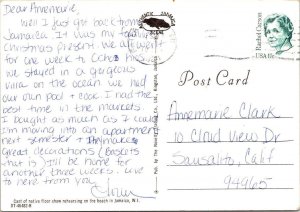 Dear Annemarie,
Well I just got back from
Jamaica. It was my
Christmas present. We all went
for one week to Ocho Rios
we stayed in a gorgeous
villa on the ocean we had
our own pool & cook. I had the
best time in the markets
I bought as much as I could
I'm moving into an apartment
next semester & Jamaica
Great decorations (baskets
that is) I'll be home for
another three weeks.
to hear from you
Cast of native floor show rehearsing on the beach in Jamaica, W.I.
Rachel Carson
USA 17c
Post Card
Annemarie Clark
10 Cloud View Dr
Sausalito, Calif
94965